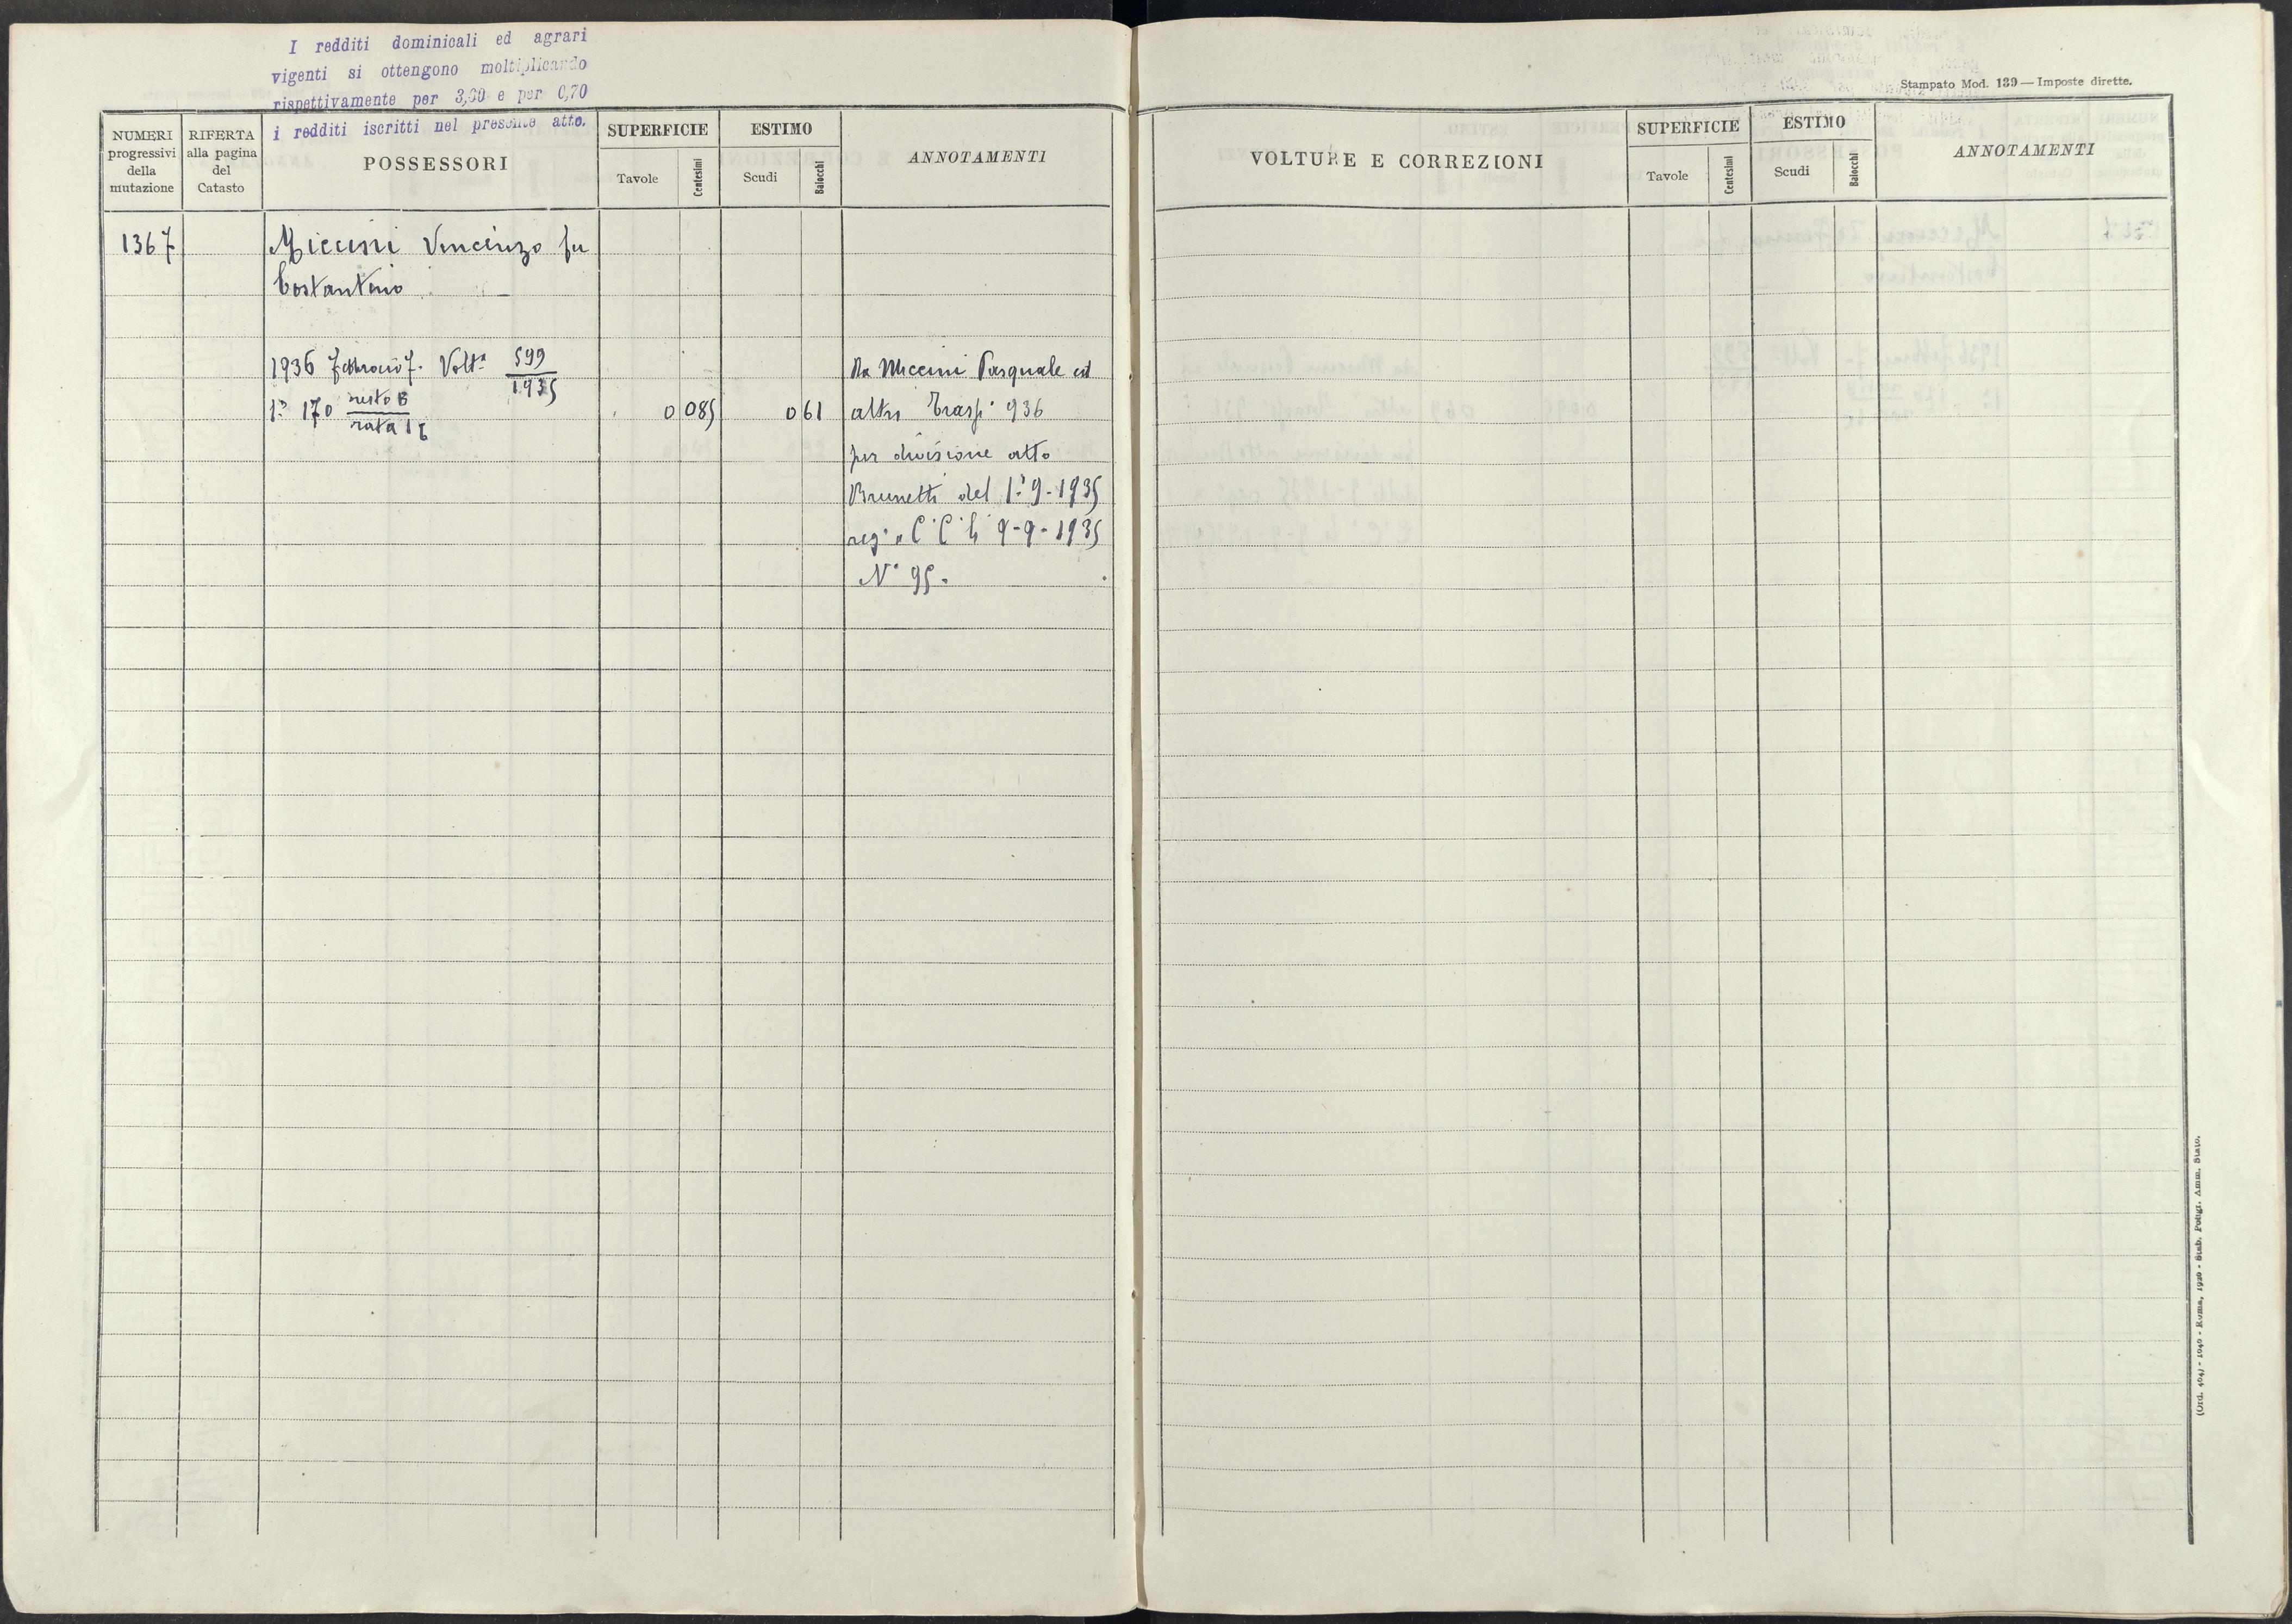 I redditi dominicali ed agrari
vigenti si ottengono moltiplicando
rispettivamente per 3,60 e per 0,70
i redditi iscritti nel presente atto.
Stampato Mod. 139 — Imposte dirette.
NUMERI progressivi della mutazione
RIFERTA alla pagina del Catasto
POSSESSORI
SUPERFICIE
Tavole
Centesimi
ESTIMO
Scudi
Baiocchi
ANNOTAMENTI
VOLTURE E CORREZIONI
SUPERFICIE
Tavole
Centesimi
ESTIMO
Scudi
Baiocchi
ANNOTAMENTI
1367
Miccini Vincenzo fu
Costantino
1936 Febbraio 7. Volta 599/1935
Da Miccini Pasquale ed
1ª 170 resto B/rata 0 085 0 61
altri Traspº 936
per divisione atto
Brunetti del 1º-9-1935
regº a C C li 9-9-1935
Nº 95.
(Ord. 404) - 1040 - Roma, 1930 - Stab. Poligr. Amm. Stato.